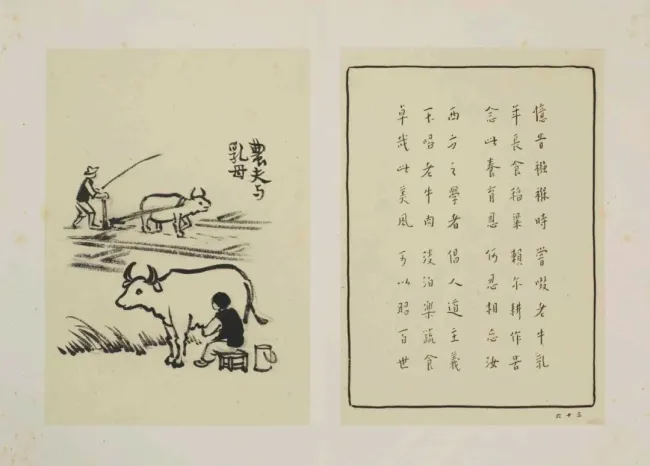 農夫与
乳母
憶昔襁褓時 嘗啜老牛乳
年長食稻粱 賴尔耕作苦
念此養育恩 何忍相忘汝
西方之學者 倡人道主義
不啗老牛肉 淡泊樂蔬食
卓哉此美風 可以昭百世
六十三